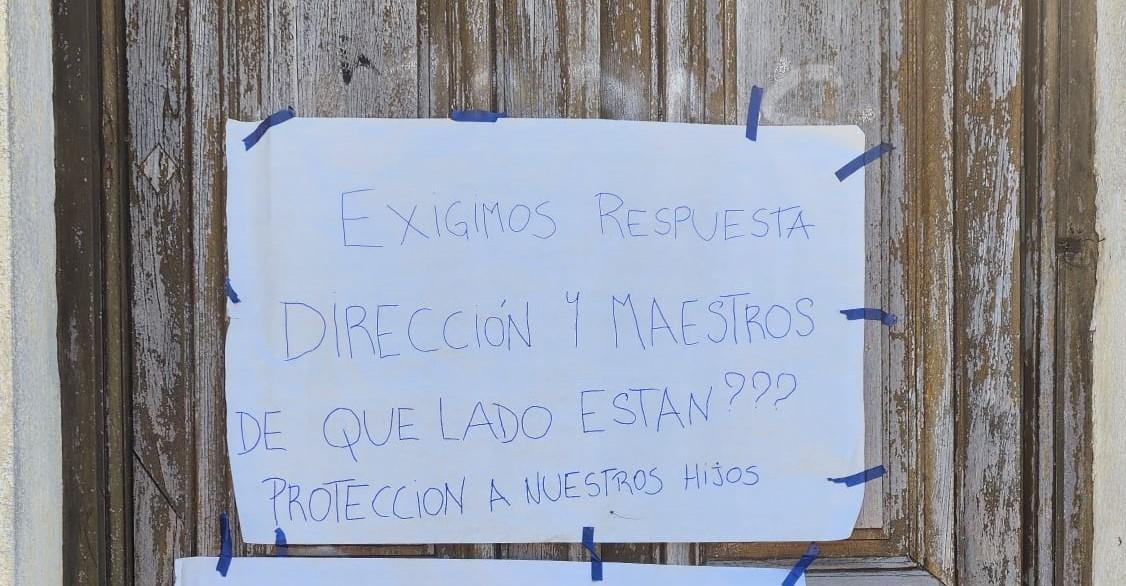 EXIGIMOS RESPUESTA
DIRECCIÓN Y MAESTROS
DE QUE LADO ESTAN???
PROTECCION A NUESTROS HIJOS